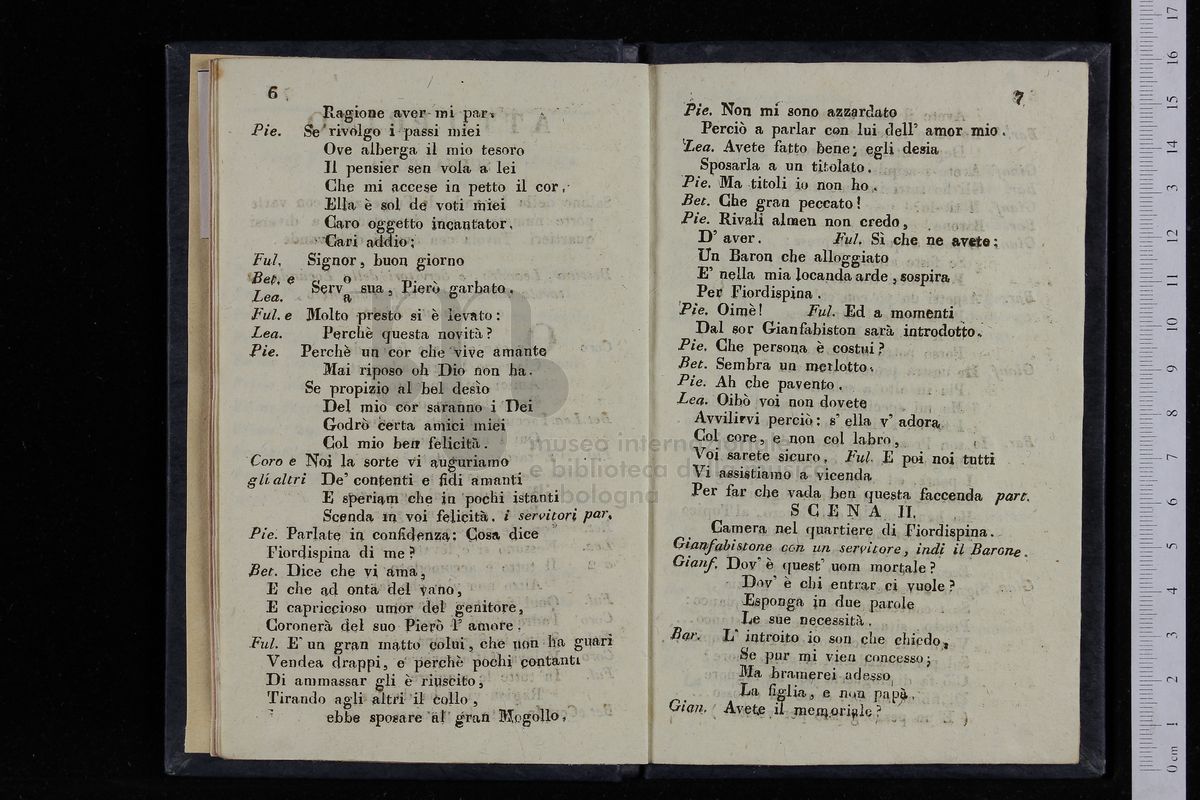 6
Ragione aver mi par.
Pie. Se rivolgo i passi miei
Ove alberga il mio tesoro
Il pensier sen vola a lei
Che mi accese in petto il cor.
Ella è sol de voti miei
Caro oggetto incantator.
Cari addio;
Ful. Signor, buon giorno
Bet. e Lea. Serv o/a sua, Pierò garbato.
Ful. e Molto presto si è levato:
Lea. Perchè questa novità?
Pie. Perchè un cor che vive amante
Mai riposo oh Dio non ha.
Se propizio al bel desìo
Del mio cor saranno i Dei
Godrò certa amici miei
Col mio ben felicità.
Coro e Noi la sorte vi auguriamo
gli altri De' contenti e fidi amanti
E speriam che in pochi istanti
Scenda in voi felicità. i servitori par.
Pie. Parlate in confidenza: Cosa dice
Fiordispina di me?
Bet. Dice che vi ama,
E che ad onta del vano,
E capriccioso umor del genitore,
Coronerà del suo Pierò l' amore.
Ful. E' un gran matto colui, che non ha guari
Vendea drappi, e perchè pochi contanti
Di ammassar gli è riuscito,
Tirando agli altri il collo,
ebbe sposare al gran Mogollo.
7
Pie. Non mi sono azzardato
Perciò a parlar con lui dell' amor mio.
Lea. Avete fatto bene; egli desia
Sposarla a un titolato.
Pie. Ma titoli io non ho.
Bet. Che gran peccato!
Pie. Rivali almen non credo,
D' aver. Ful. Sì che ne avete;
Un Baron che alloggiato
E' nella mia locanda arde, sospira
Per Fiordispina.
Pie. Oimè! Ful. Ed a momenti
Dal sor Gianfabiston sarà introdotto.
Pie. Che persona è costui?
Bet. Sembra un merlotto.
Pie. Ah che pavento.
Lea. Oibò voi non dovete
Avvilirvi perciò: s' ella v' adora
Col core, e non col labro,
Voi sarete sicuro. Ful. E poi noi tutti
Vi assistiamo a vicenda
Per far che vada ben questa faccenda part.
SCENA II.
Camera nel quartiere di Fiordispina.
Gianfabistone con un servitore, indi il Barone.
Gianf. Dov' è quest' uom mortale?
Dov' è chi entrar ci vuole?
Esponga in due parole
Le sue necessità.
Bar. L' introito io son che chiedo,
Se pur mi vien concesso;
Ma bramerei adesso
La figlia, e non papà.
Gian. Avete il memoriale?
museo internazionale
e biblioteca della musica
di bologna
0 cm 1 2 3 4 5 6 7 8 9 10 11 12 13 14 15 16 17